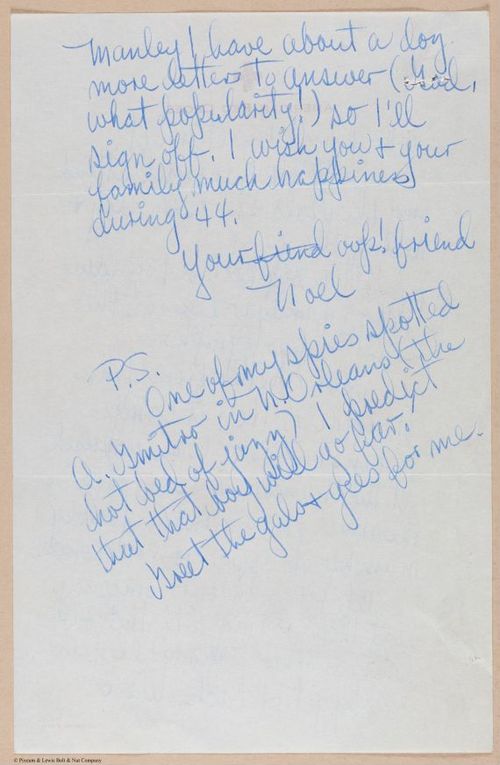 Manley I have about a doz.
more letters to answer (God,
what popularity!) so I'll
sign off. I wish you + your
family much happiness
during '44.
Your fiend oops! friend
Noel
P.S.
One of my spies spotted
A. Gmitro in N. Orleans (the
hot bed of jazz) I predict
thet that boy will go far.
Greet the gals + guys for me.
© Pioneer & Lewis Bolt & Nut Company